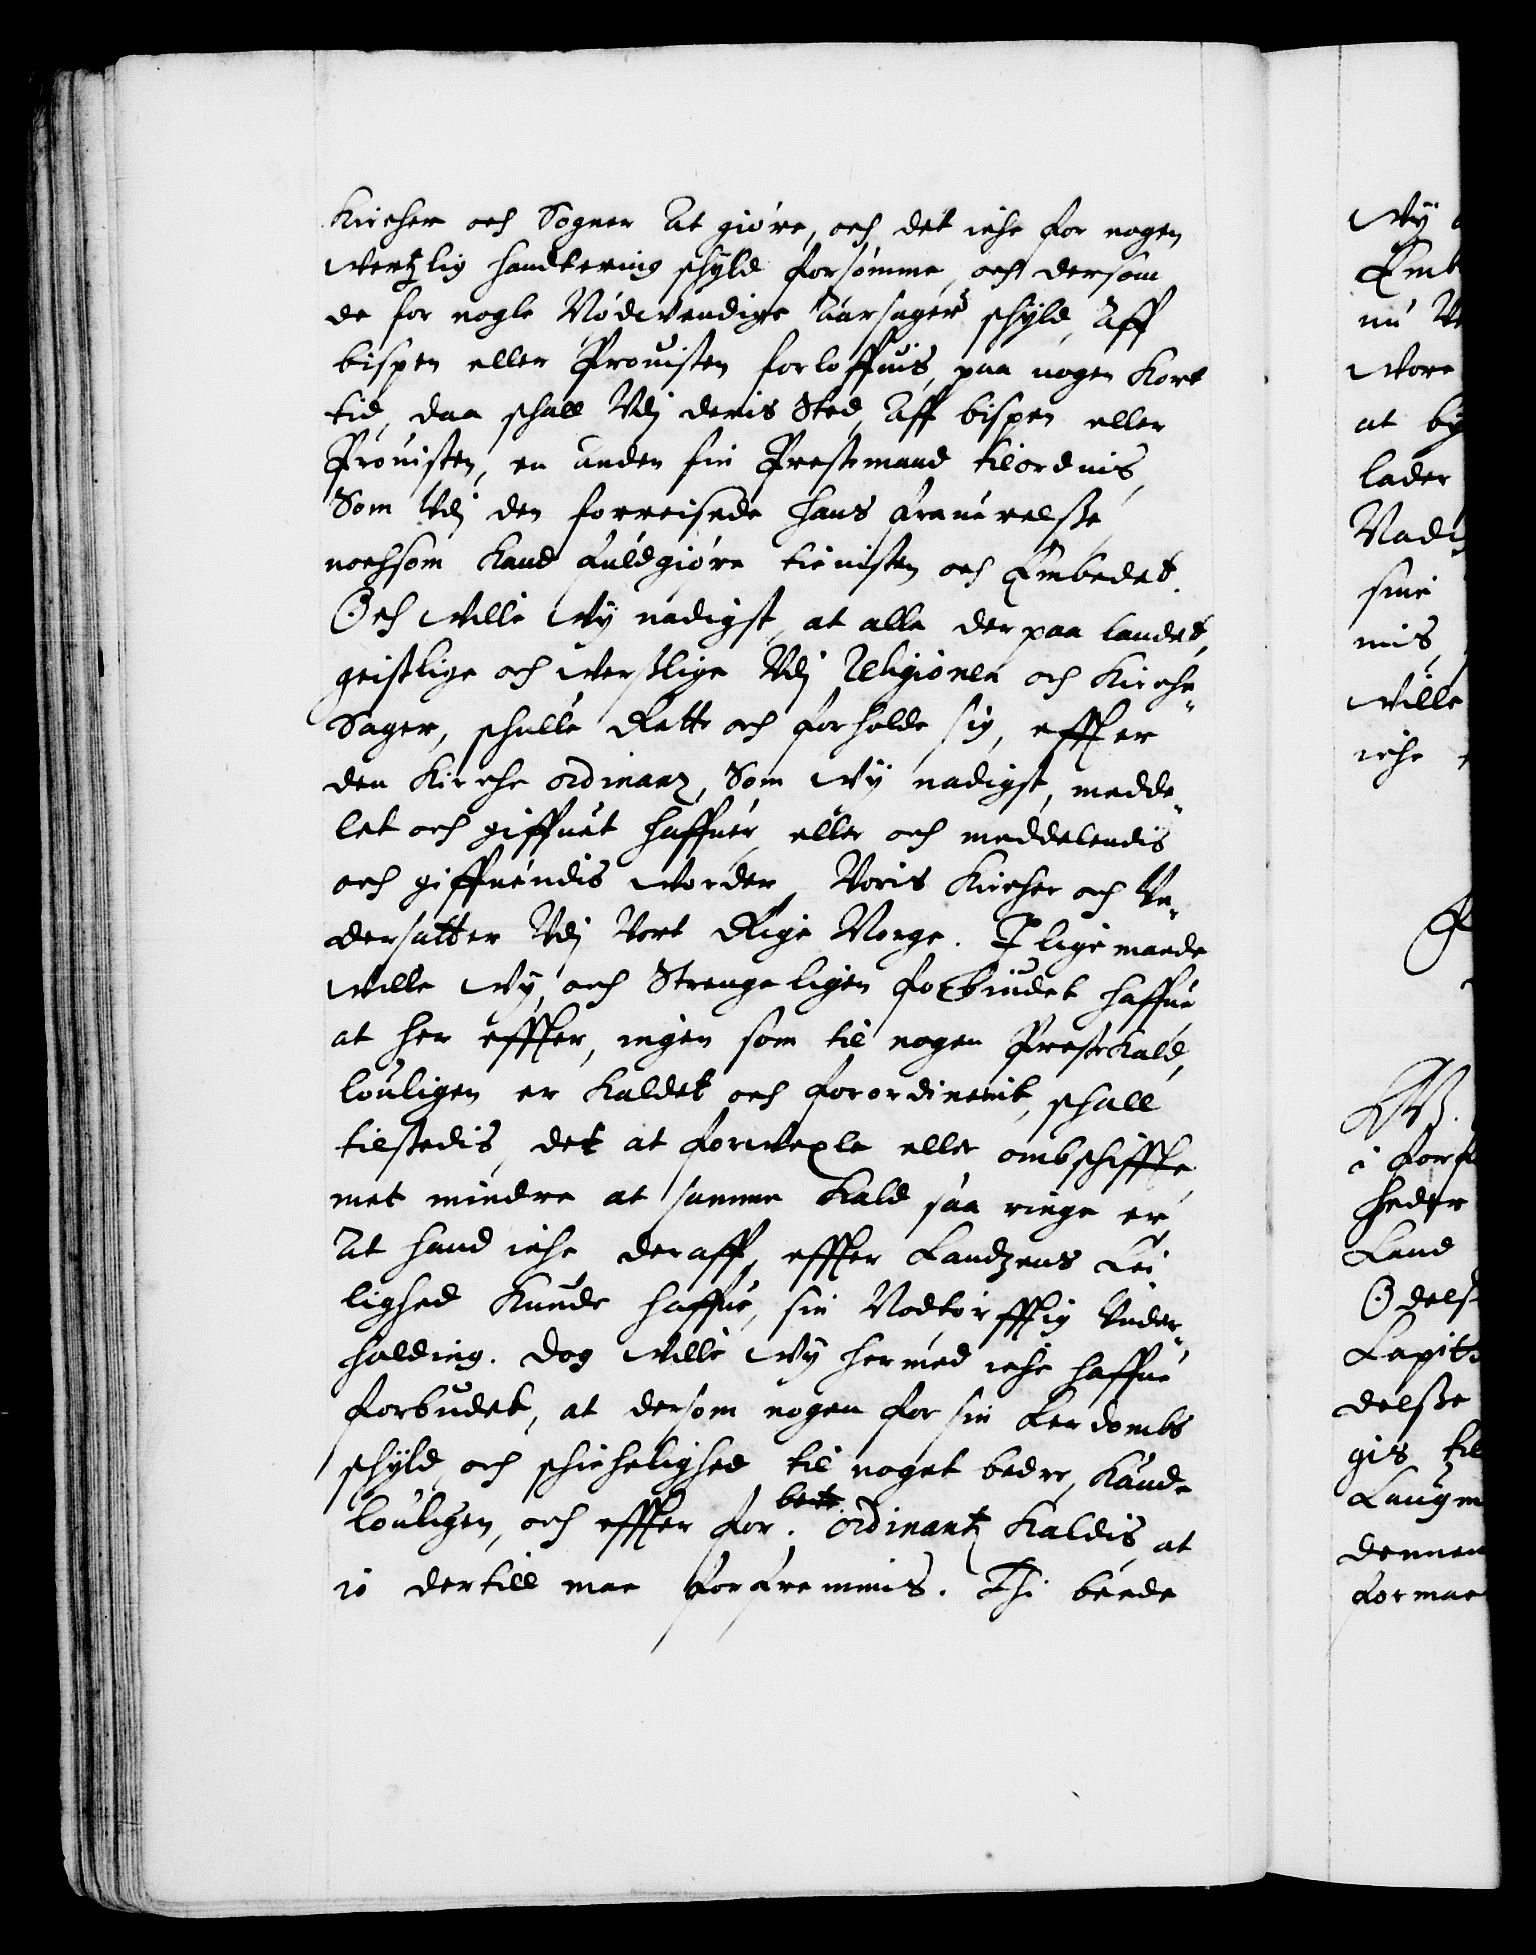 Kircher och Sogner At giøre, och det iche for nogen
wertzlig handtering schyld forsømme, och dersom
de for nogle Nødwendige Aarsager schyld, Aff
bispen eller Prouisten forloffuis, paa nogen Kort
tid, daa schall Vdj deris Sted, Aff bispen eller
Prouisten, en anden fin Prestemand tilordnis,
Som Vdj den forreisede hans frauerelsse
nochsom Kand fuldgiøre tienisten och Embedet.
Och wille wy nadigst, at alle der paa landet,
geistlige och werslige Vdj Religionen och Kirche
Sager, schulle Rette och forholde sig, effter
den Kirche ordinanz, Som wij nadigst, medde
let och giffuet haffuer, eller och meddelendis
och giffuendis worder, Voris Kircher och Vn
dersatter Vdj Vort Rige Norge. I lige maade
wille wy, och Strengeligen forbiudet haffue
at her effter, ingen som til nogen Prestekald,
louligen er Kaldet och forordinerit, schall
tilstedis, det at forwexle eller ombschiffte,
met mindre at samme Kald saa ringe er,
At hand iche deraff, effter Landzens Lei
lighed Kunde haffue, sin Nødtørfftig Vnder
holding. Dog wille wy hermed iche haffue
forbudet, at dersom nogen for sin Lerdombs
schyld och schichelighed til noget bedre, Kande
louligen, och effter for.bente ordinantz Kaldis, at
io dertill maa forfremmis. Thi beede
wij
Emb
nu
wore
at by
lader
Nadi
sine
mis
wille
iche
i forf
heder
Land
Odels
Capit
delsse
gis til
Laugm
dennem
formae